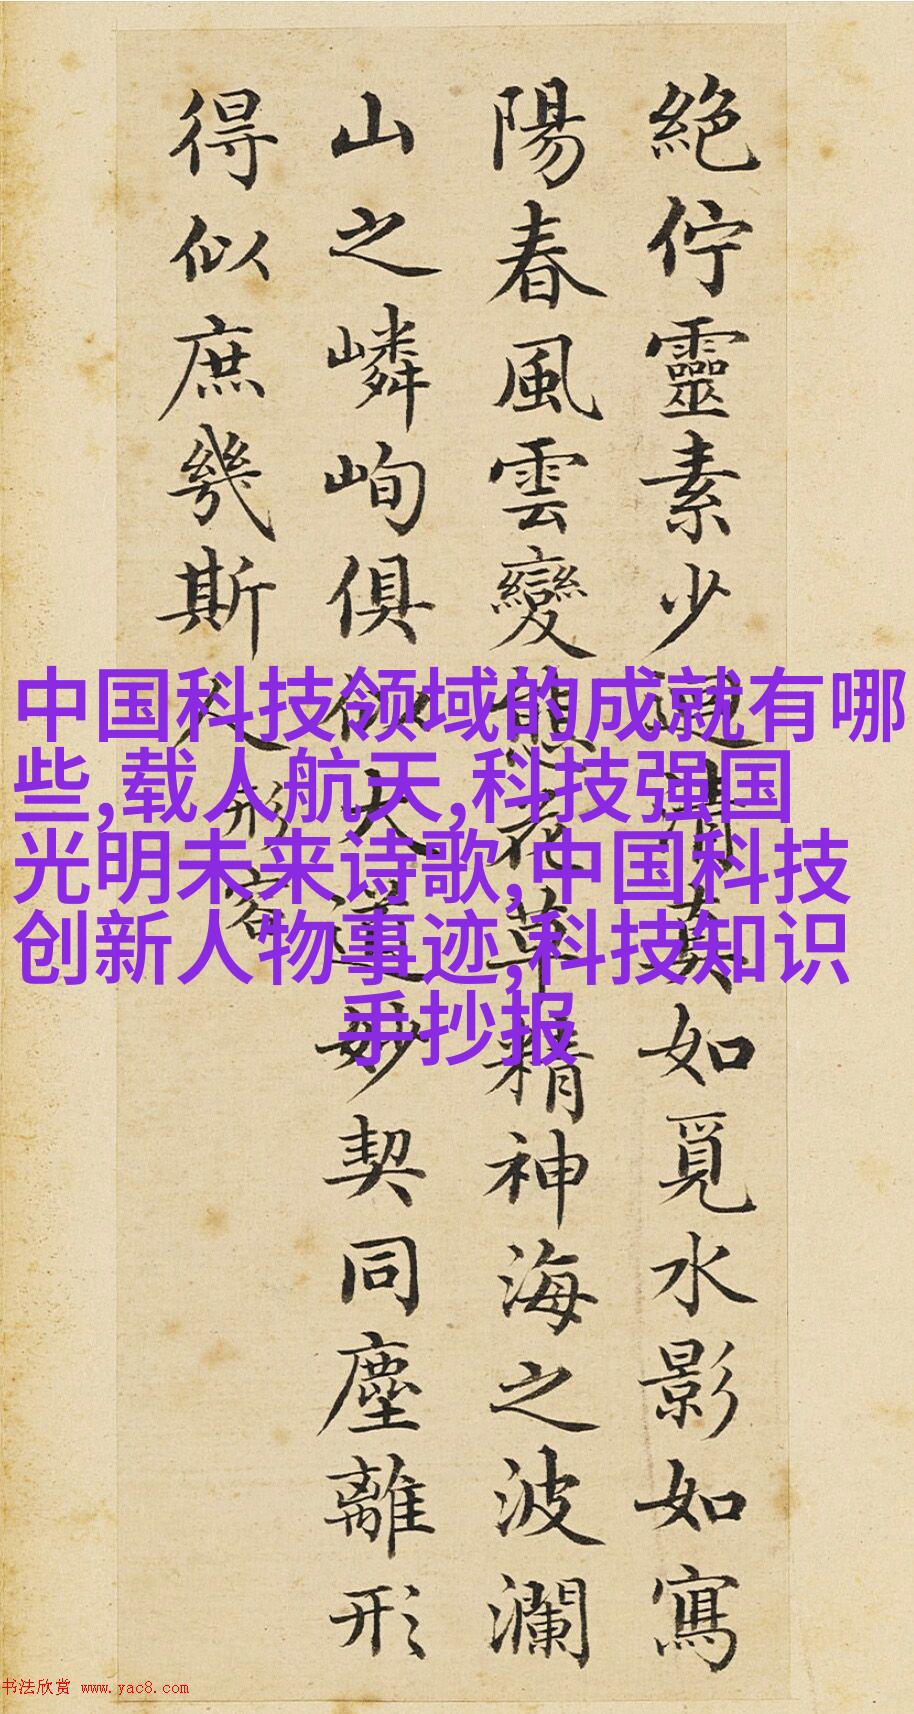 絕佇靈素少清真如覓水影如寫
陽春風雲變態花草精神海之波瀾
山之嶙峋俱似大道妙契同塵離形
得似庶幾斯人
形容
中国科技领域的成就有哪
些,载人航天,科技强国
光明未来诗歌,中国科技
创新人物事迹,科技知识
手抄报
书法欣赏 www.yac8.com